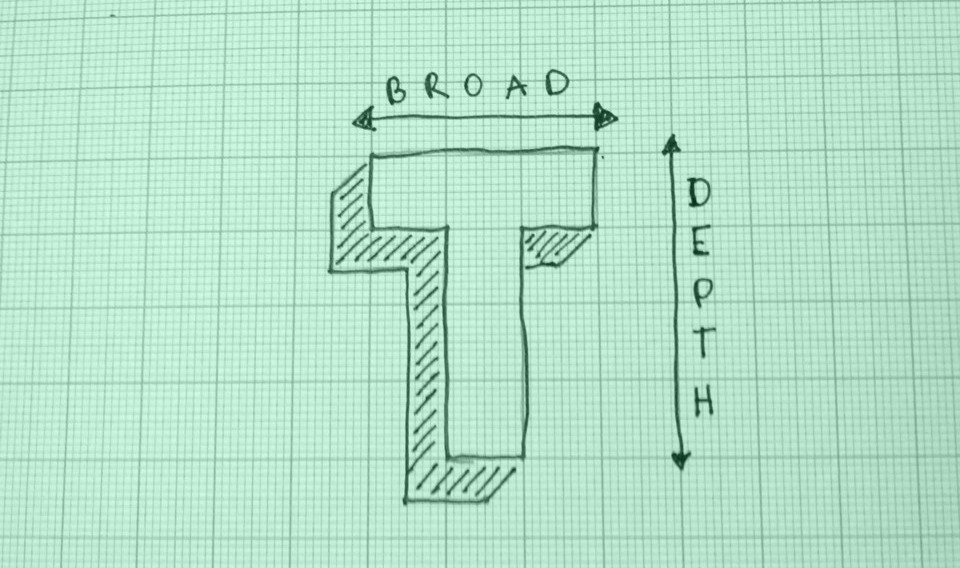 BROAD
T
DEPTH